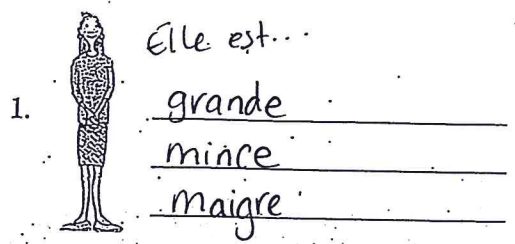 Elle est...
1.
grande
mince
maigre